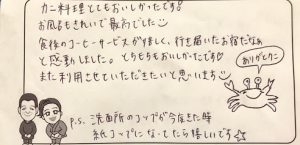 カニ料理とてもおいしかったです♡
お風呂もきれいで最高でした
食後のコーヒーサービスが嬉しく、行き届いたお宿だなぁ
と感動しました。とちもちもおいしかったです♡
また利用させていただきたいと思います
ありがとカニ
P.S. 洗面所のコップが今度来た時
紙コップになってたら嬉しいです☆